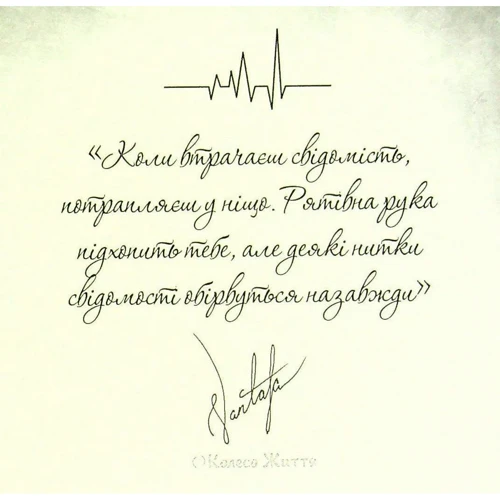 «Коли втрачаєш свідомість,
потрапляєш у ніщо. Рятівна рука
підхопить тебе, але деякі нитки
свідомості обірвуться назавжди»
Калесо Життя